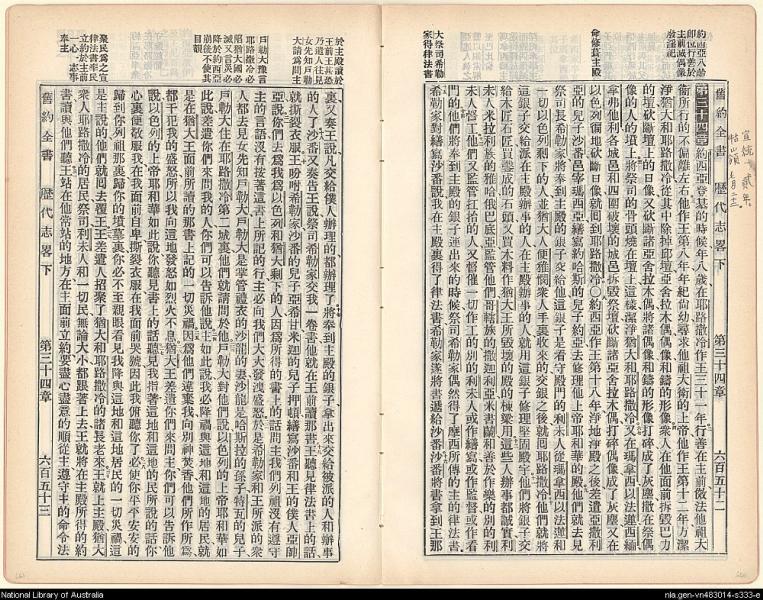 約西亞八齡
卽位行善於
主前滅偶像
廢淫祀
命修葺主殿
大祭司希勒
家得律法書
宣統貳年
舊約全書 歷代志畧下 第三十四章 六百五十二
第三十四章 約西亞登基的時候年八歲在耶路撒冷作王三十一年行善在主前傚法他祖大
衞所行的不偏離左右他作王第八年年紀尚幼尋求他祖大衞的上帝他作王第十二年方潔
淨猶大和耶路撒冷從其中除掉邱壇亞舍拉木偶像和鑄的形像衆人在他面前拆毀巴力
的壇砍斷壇上的日像又砍斷諸亞舍拉木偶將諸偶像和鑄的形像打碎成了灰塵撒在祭偶
像的人的墳上將祭司的骨頭燒在壇上這樣潔淨猶大和耶路撒冷又在瑪拿西以法蓮西緬
拿弗他利各城邑和四圍破壞的城邑拆毀祭壇砍斷諸亞舍拉木偶打碎偶像成了灰塵又在
以色列徧地砍斷日像就囘到耶路撒冷〇約西亞作王第十八年淨地淨殿之後差遣亞撒利
亞的兒子沙番邑宰瑪西亞繕寫約哈斯的兒子約亞去修理他上帝耶和華的殿他們就去見
祭司長希勒家將奉到主殿的銀子交給他這銀子是看守殿門的利未人從瑪拿西以法蓮和
一切以色列剩下的人並猶大人便雅憫衆人手裏收來的交銀之後就囘耶路撒冷他們就將
這銀子交給派在主殿辦事的人在主殿辦事的人就用這銀子修理堅固殿宇他們將銀子交
給木匠石匠買鑿成的石頭又買木料作猶大王所毀壞的殿的棟梁用這些人辦事都誠實利
未人米拉利族的雅哈俄巴底亞監管他們哥轄族的撒迦利亞米書蘭和善於作樂的別的利
未人督工他們又監管扛抬的人又督催一切作工的別的利未人或作繕寫或作監督或作看
門的他們將奉到主殿的銀子運出來的時候祭司希勒家偶然得了摩西所傳的主的律法書
希勒家對繕寫沙番說我在主殿裏得了律法書希勒家遂將書遞給沙番沙番將書拿到王那
於主殿讀於
王前王甚恐
乃遣人往見
女先知戶勒
大請爲問主
戶勒大豫言
耶路撒冷必
緣猶大國必
滅又言災必
降於約西亞
崩後不使其
目覩
聚民爲之宣
律法書率民
立約於主前
一心一志事
奉主
裏又奏王說凡交給僕人辦理的都辦理了將奉到主殿的銀子拿出來交給被派的人和辦事
的人了沙番又奏告王說祭司希勒家交我一卷書他就在王前讀那書王聽見律法書上的話
就撕裂衣服王吩咐希勒家沙番的兒子亞希甘米迦的兒子押頓繕寫沙番和王的僕人亞帥
亞說你們去爲我爲以色列和猶大剩下的人因爲所得的書上的話問主我們列祖沒有遵守
主的言語沒有按著這書上所記的行主必向我們大大發洩盛怒於是希勒家和王所派的衆
人都去見女先知戶勒大戶勒大是掌管禮衣的沙龍的妻沙龍是哈斯拉的孫子特瓦的兒子
戶勒大住在耶路撒冷第二城裏他們就請問於他戶勒大對他們說以色列的上帝耶和華如
此說差遣你們來問我的人你們可以告訴他說主如此說我必降禍與這地和這地的居民就
是在猶大王面前所讀的那書上記的一切災禍因爲他們違棄我向別神焚香他們所作所爲
都干犯我的盛怒所以我向這地發怒如烈火不息猶大王差遣你們來問主你們可以告訴他
說以色列的上帝耶和華如此說你聽見書上的話聽見我指著這地和這地的民所說的話你
心裏便敬服我在我面前自卑撕裂衣服在我面前哭號因此我俯聽你了必使你平平安安的
歸到你列祖那裏歸你的墳墓裏你必不至親眼看見我降與這地和這地居民的一切災禍這
是主說的他們就囘去覆王王差遣人招聚了猶大和耶路撒冷的諸長老來王就上主殿猶大
衆人耶路撒冷的居民祭司利未人和一切民無論大小都跟著上去王就將在主殿所得的約
書讀與他們聽王站在他常站的地方在主面前立約要盡心盡意的順從主遵守主的命令法
舊約全書 歷代志畧下 第三十四章 六百五十三
National Library of Australia
nla.gen-vn483014-s333-e